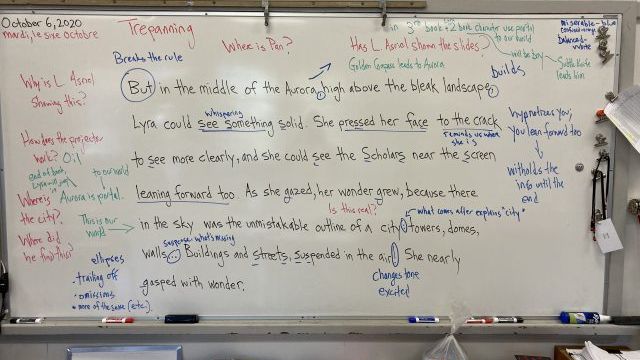 October 6, 2020
mardi, le six octobre
Trepanning
in 3rd book + 2 book character use portal
to our world
miserable - blue
balanced - white
Breaks the rule
Where is Pan?
Has L. Asriel shown the slides?
will be boy
Golden Compass leads to Aurora
builds
Subtle Knife
leads him
Why is L Asriel
showing this?
But in the middle of the Aurora, high above the bleak landscape,
whispering
Lyra could see something solid. She pressed her face to the crack
reminds us where
she is
hypnotizes you;
you lean forward too
How does the projector
work? O:1
to see more clearly, and she could see the Scholars near the screen
witholds the
info until the
end
end of book,
to our world
Where is
the city?
Aurora is portal.
leaning forward too. As she gazed, her wonder grew, because there
Is this real?
what comes after explains "city"
This is our
world
in the sky was the unmistakable outline of a city: towers, domes,
Where did
he find this?
suspense what's missing
walls... Buildings and streets, suspended in the air! She nearly
ellipses
• trailing off
• omissions
• more of the same (etc.)
changes tone
excited
gasped with wonder.